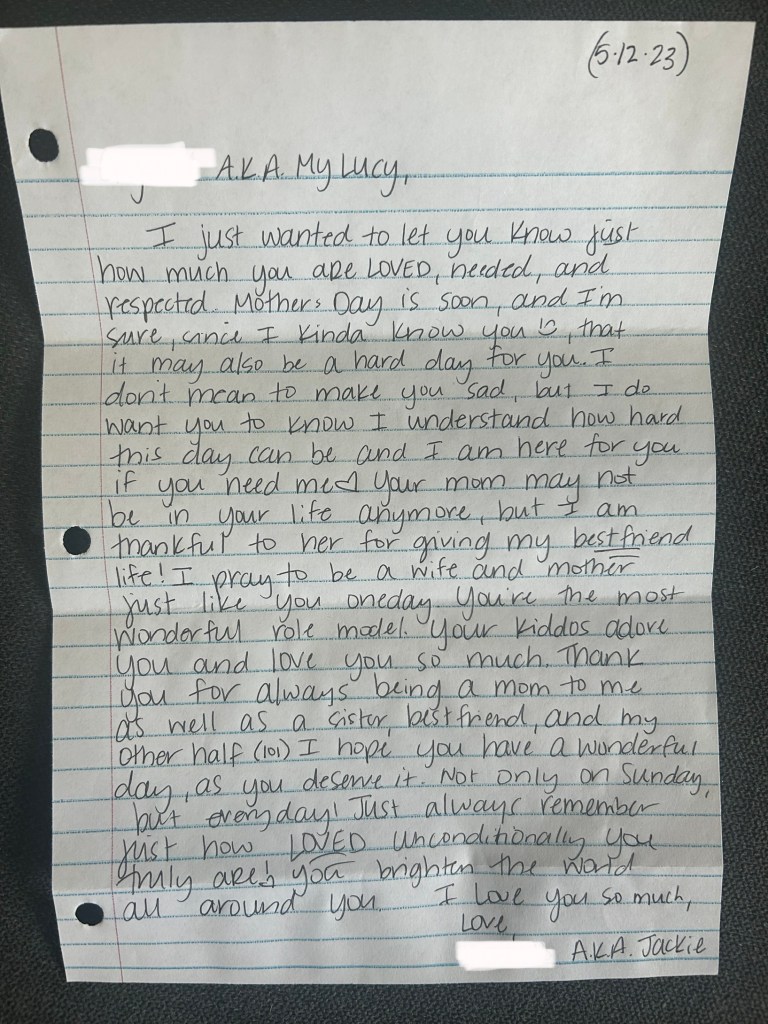 (5.12.23)
A.K.A. My Lucy,
I just wanted to let you know just
how much you are LOVED, needed, and
respected. Mothers Day is soon, and I'm
sure, since I kinda know you, that
it may also be a hard day for you. I
don't mean to make you sad, but I do
want you to know I understand how hard
this day can be and I am here for you
if you need me♡ Your mom may not
be in your life anymore, but I am
thankful to her for giving my bestfriend
life! I pray to be a wife and mother
just like you oneday. You're the most
wonderful role model. Your kiddos adore
you and love you so much. Thank
you for always being a mom to me
as well as a sister, bestfriend, and my
other half (lol) I hope you have a wonderful
day, as you deserve it. Not only on Sunday,
but everyday! Just always remember
just how LOVED unconditionally you
truly are! you brighten the world
all around you. I love you so much,
Love,
A.K.A. Jackie